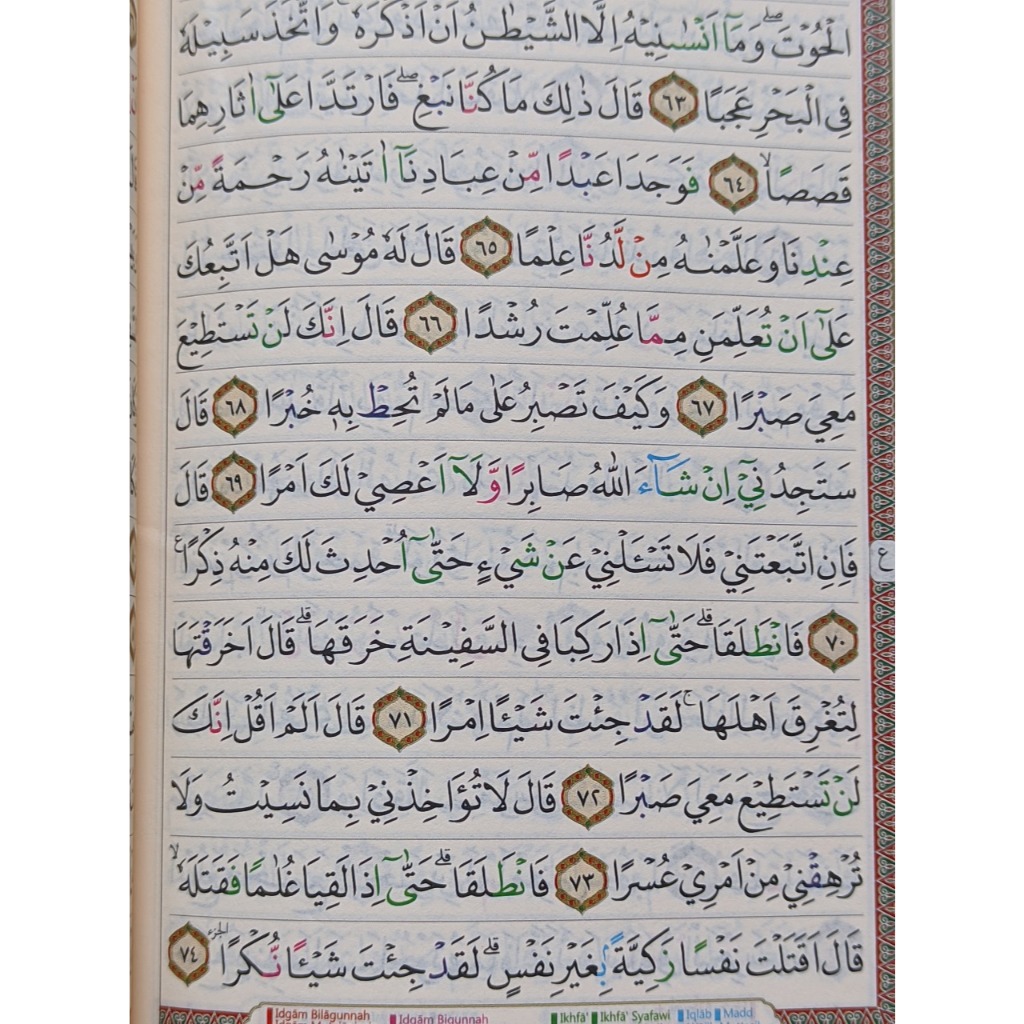 الْحُوْتَ ۖ وَمَآ اَنْسٰىنِيْهُ اِلَّا الشَّيْطٰنُ اَنْ اَذْكُرَهٗ ۚ وَاتَّخَذَ سَبِيْلَهٗ
فِى الْبَحْرِ عَجَبًا ٦٣ قَالَ ذٰلِكَ مَا كُنَّا نَبْغِ ۖ فَارْتَدَّا عَلٰٓى اٰثَارِهِمَا
قَصَصًا ۙ ٦٤ فَوَجَدَا عَبْدًا مِّنْ عِبَادِنَآ اٰتَيْنٰهُ رَحْمَةً مِّنْ
عِنْدِنَا وَعَلَّمْنٰهُ مِنْ لَّدُنَّا عِلْمًا ٦٥ قَالَ لَهٗ مُوْسٰى هَلْ اَتَّبِعُكَ
عَلٰٓى اَنْ تُعَلِّمَنِ مِمَّا عُلِّمْتَ رُشْدًا ٦٦ قَالَ اِنَّكَ لَنْ تَسْتَطِيْعَ
مَعِيَ صَبْرًا ٦٧ وَكَيْفَ تَصْبِرُ عَلٰى مَا لَمْ تُحِطْ بِهٖ خُبْرًا ٦٨ قَالَ
سَتَجِدُنِيْٓ اِنْ شَاۤءَ اللّٰهُ صَابِرًا وَّلَآ اَعْصِيْ لَكَ اَمْرًا ٦٩ قَالَ
فَاِنِ اتَّبَعْتَنِيْ فَلَا تَسْـَٔلْنِيْ عَنْ شَيْءٍ حَتّٰٓى اُحْدِثَ لَكَ مِنْهُ ذِكْرًا ع
ع
٧٠ فَانْطَلَقَا ۗ حَتّٰٓى اِذَا رَكِبَا فِى السَّفِيْنَةِ خَرَقَهَا ۗ قَالَ اَخَرَقْتَهَا
لِتُغْرِقَ اَهْلَهَا ۚ لَقَدْ جِئْتَ شَيْـًٔا اِمْرًا ٧١ قَالَ اَلَمْ اَقُلْ اِنَّكَ
لَنْ تَسْتَطِيْعَ مَعِيَ صَبْرًا ٧٢ قَالَ لَا تُؤَاخِذْنِيْ بِمَا نَسِيْتُ وَلَا
تُرْهِقْنِيْ مِنْ اَمْرِيْ عُسْرًا ٧٣ فَانْطَلَقَا ۗ حَتّٰٓى اِذَا لَقِيَا غُلٰمًا فَقَتَلَهٗ ۙ
قَالَ اَقَتَلْتَ نَفْسًا زَكِيَّةً ۢبِغَيْرِ نَفْسٍ ۗ لَقَدْ جِئْتَ شَيْـًٔا نُّكْرًا الجزء ٧٤
Idgām Bilāgunnah Idgām Bigunnah Ikhfā' Ikhfā' Syafawi Iqlāb Madd